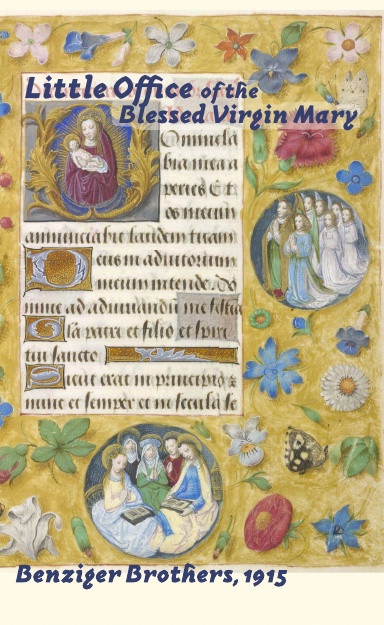 Little Office of the
Blessed Virgin Mary
Domine la
bia mea a
peries Et
os meum
annunciabit laudem tuam
Deus in adiutorium
meum intende Do
mine ad adiuuandū me festīa
Gl̄ia patri et filio et spiri
tui sancto
Sicut erat in principio ⁊
nunc et semper et in secula se
Benziger Brothers, 1915